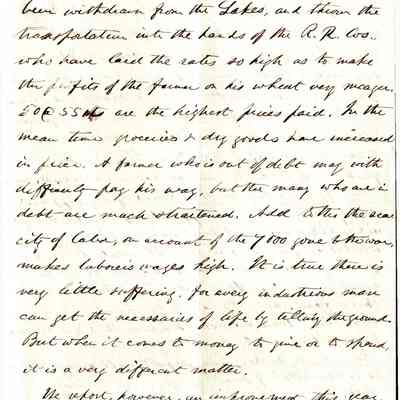 been withdrawn from the Lakes, and thrown the
transportation into the hands of the R. R. Cos.
who have laid the rates so high as to make
the profits of the farmer on his wheat very meager.
50 @ 55 are the highest prices paid. In the
mean time groceries & dry goods have increased
in price. A farmer who is out of debt may with
difficulty pay his way, but the many who are in
debt are much straitened. Add to this the scar
city of labor, on account of the 7000 gone to the war,
makes laborers wages high. It is true there is
very little suffering. For every industrious man
can get the necessaries of life by tilling the ground.
But when it comes to money to give or to spend,
it is a very different matter.
We report, however, an improvement this year